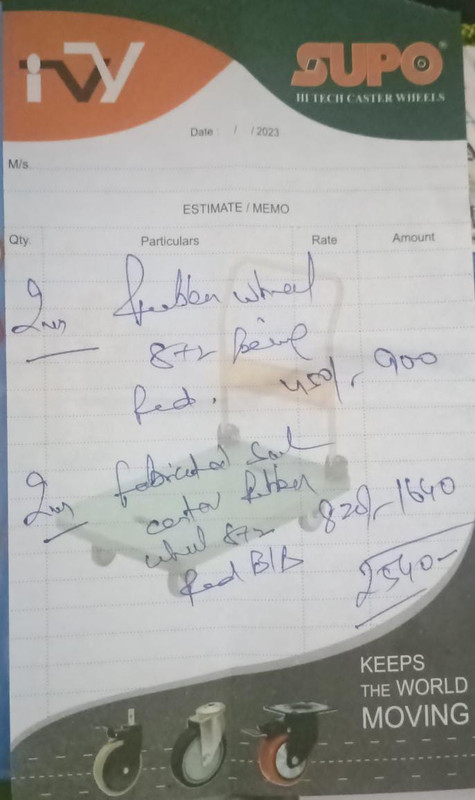 ivy
SUPO
HI TECH CASTER WHEELS
Date : / / 2023
M/s.
ESTIMATE / MEMO
Qty. Particulars Rate Amount
2 Rubber wheel
8x2
Red. 450/- 900
2 fabricated
castor Rubber
wheel 8x2 820/- 1640
Red B/B
2540-
KEEPS
THE WORLD
MOVING